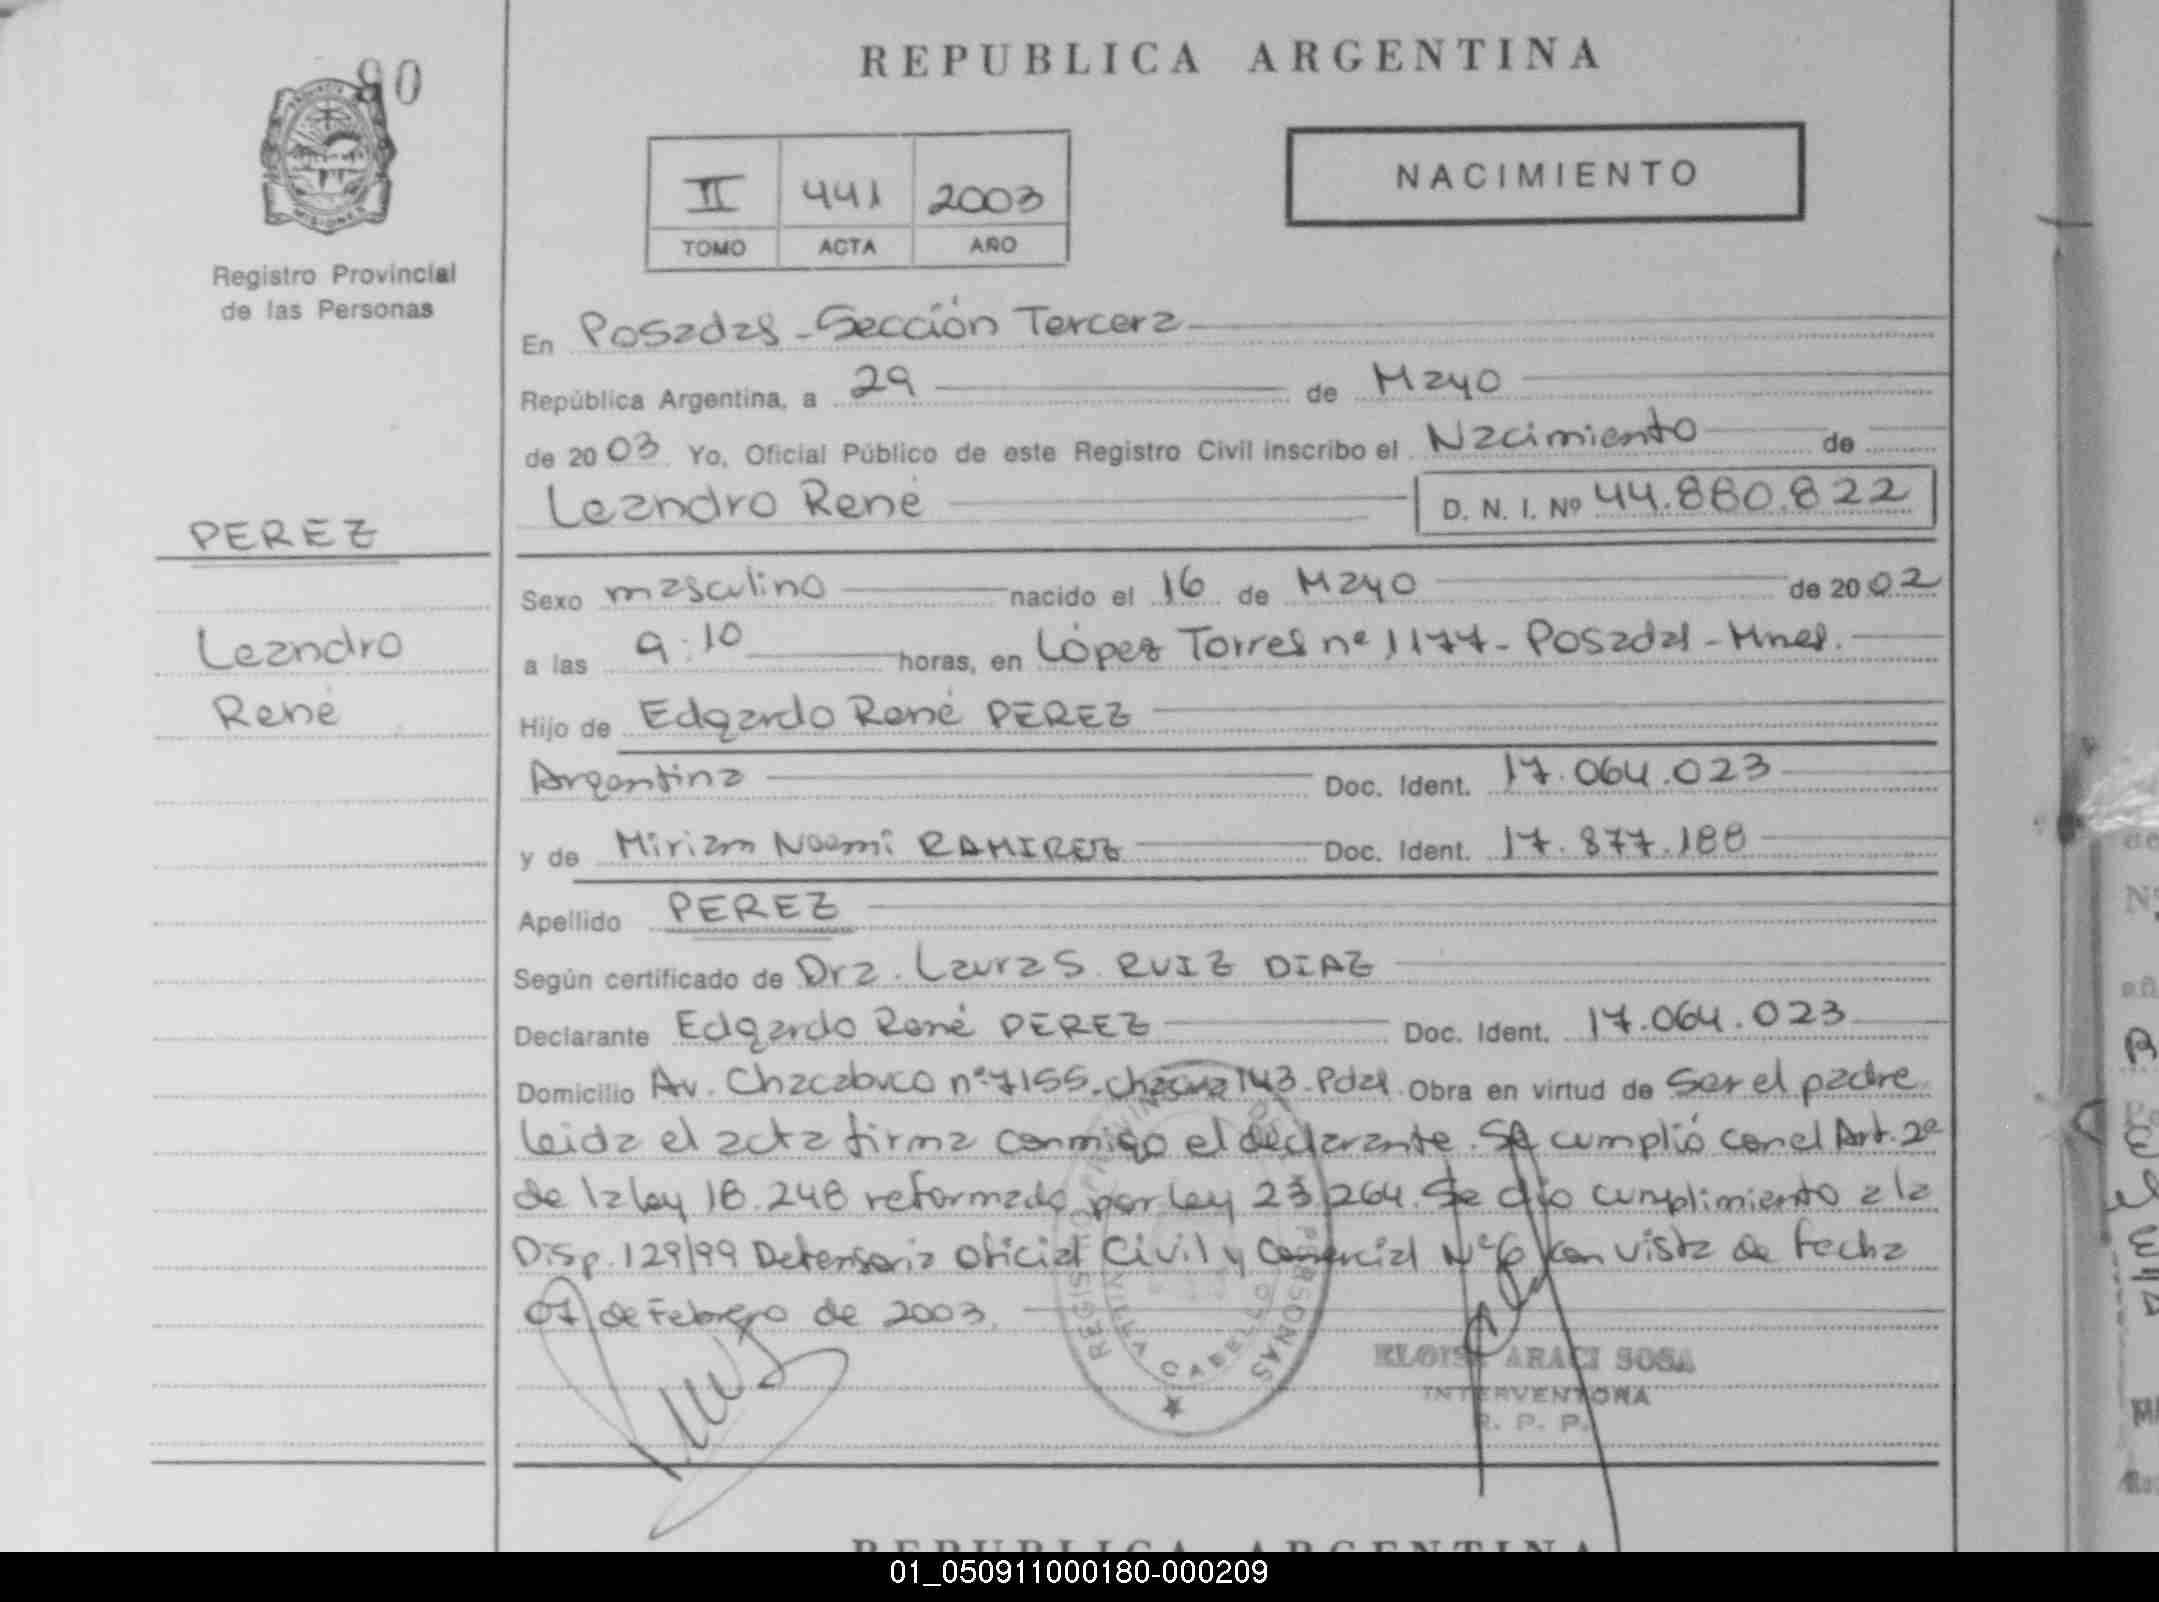 90
REPUBLICA ARGENTINA
II 441 2003
TOMO ACTA AÑO
NACIMIENTO
Registro Provincial
de las Personas
En Posadas - Sección Tercera
República Argentina, a 29 de Mayo
de 2003 Yo, Oficial Público de este Registro Civil inscribo el Nacimiento de
Leandro René D. N. I. Nº 44.880.822
PEREZ
Leandro
René
Sexo masculino nacido el 16 de Mayo de 2002
a las 9:10 horas, en López Torres nº 1177 - Posadas - Mnes.
Hijo de Edgardo René PEREZ
Argentina Doc. Ident. 17.064.023
y de Miriam Noemí RAMIREZ Doc. Ident. 17.877.188
Apellido PEREZ
Según certificado de Dra. Laura S. RUIZ DIAZ
Declarante Edgardo René PEREZ Doc. Ident. 17.064.023
Domicilio Av. Chacabuco nº 7155 - chacra 143 - Pdas. Obra en virtud de Ser el padre
leida el acta firma conmigo el declarante. Se cumplió con el Art. 2º
de la ley 18.248 reformado por ley 23.264. Se dio cumplimiento a la
Disp. 129/99 Defensoria Oficial Civil y Comercial Nº 6 con vista de fecha
07 de Febrero de 2003.
ELOISA ARACI SOSA
INTERVENTORA
R. P. P.
REPUBLICA ARGENTINA
01_050911000180-000209